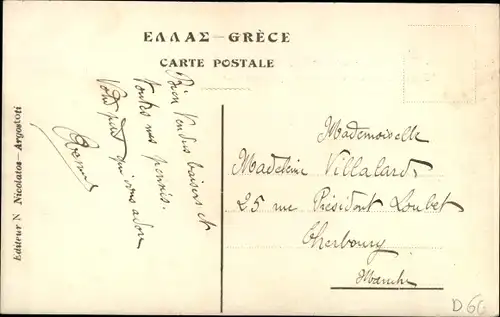 ΕΛΛΑΣ — GRÈCE
CARTE POSTALE
Editeur N Nicolatos — Argostoli
Bien tendres baisers et
toutes mes pensées.
Votre petit qui vous adore
Mademoiselle
Madeleine Villalard
25 rue Président Loubet
Cherbourg
Manche
D 60